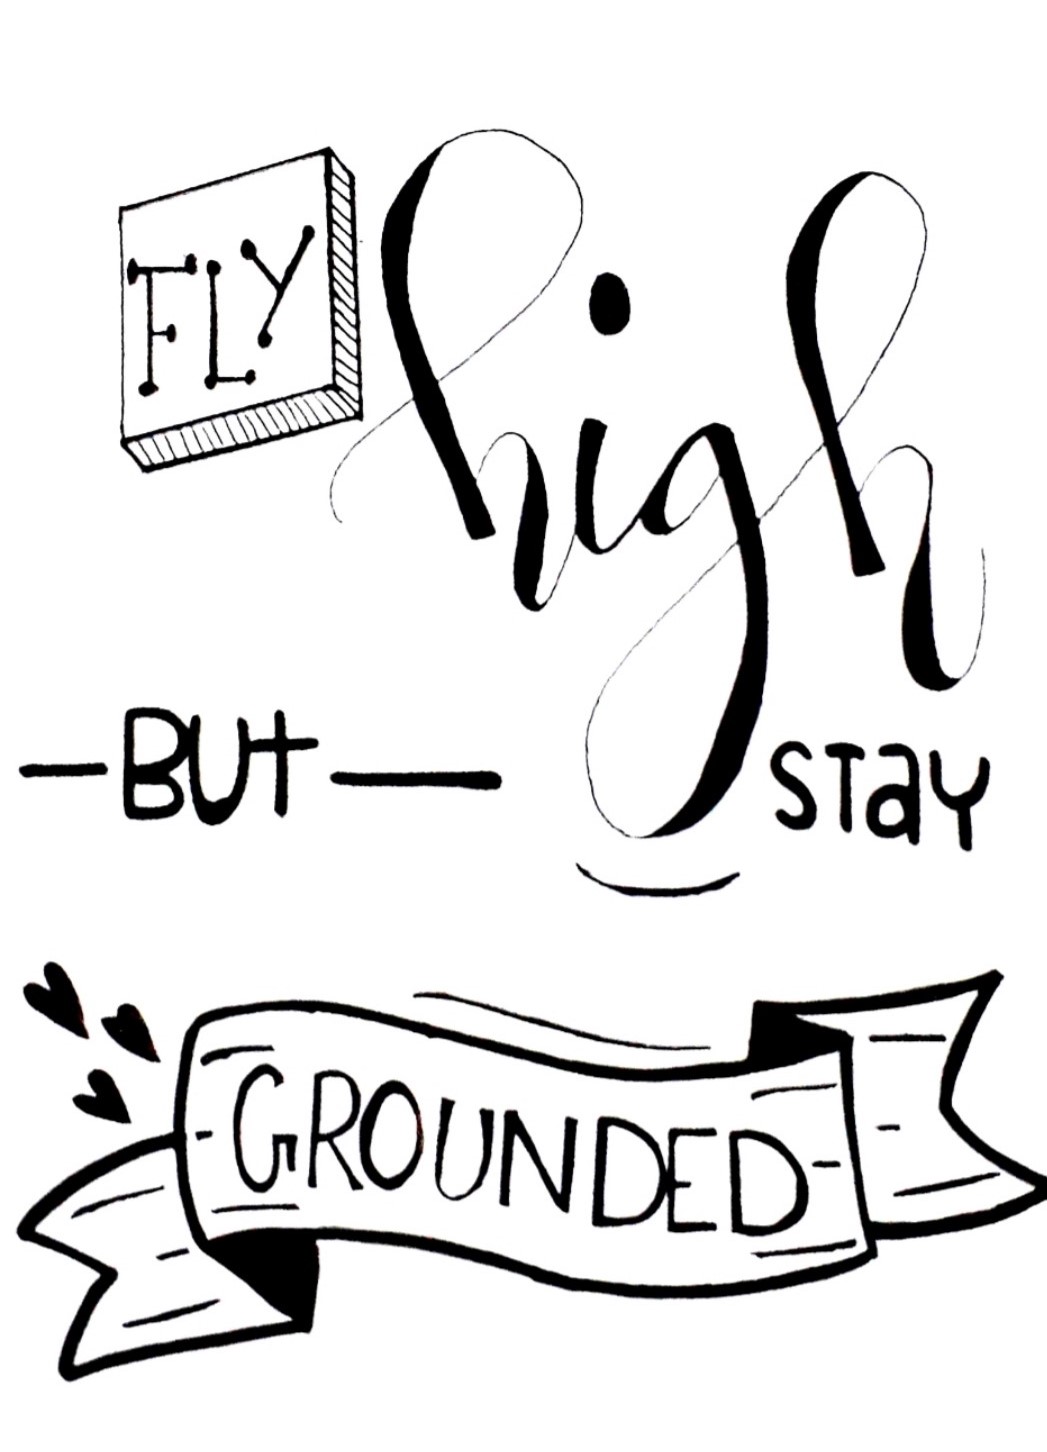 FLY
high
BUt
STay
GROUNDED